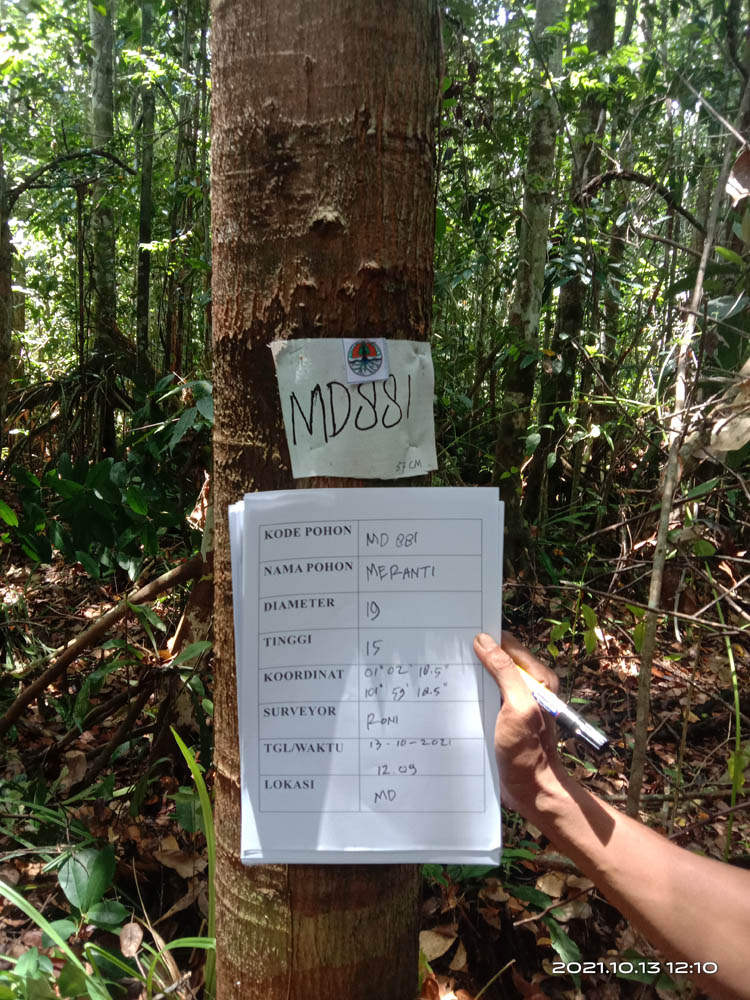 MD881
57 CM
KODE POHON MD 881
NAMA POHON MERANTI
DIAMETER 19
TINGGI 15
KOORDINAT 01° 02' 18.5"
101° 59' 18.5"
SURVEYOR RONI
TGL/WAKTU 13-10-2021
12.09
LOKASI MD
2021.10.13 12:10